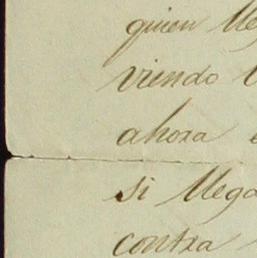 quien lle
viendo
ahora
si llega
contra